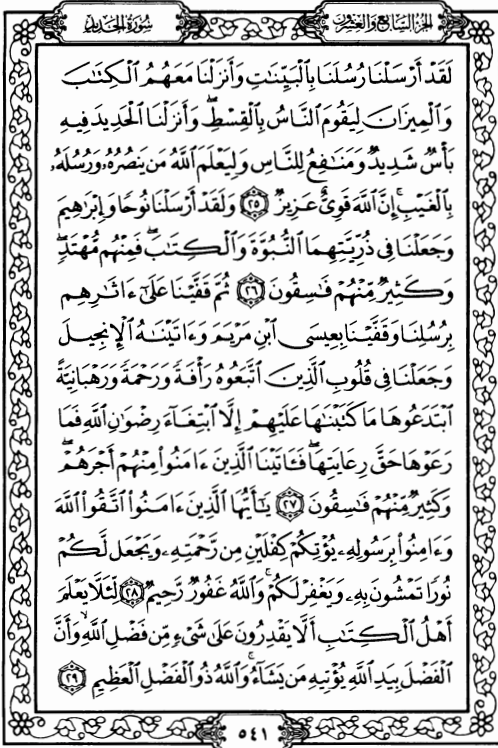 الجزء السابع والعشرون
سورة الحديد
لَقَدْ أَرْسَلْنَا رُسُلَنَا بِالْبَيِّنَٰتِ وَأَنزَلْنَا مَعَهُمُ الْكِتَٰبَ
وَالْمِيزَانَ لِيَقُومَ النَّاسُ بِالْقِسْطِۖ وَأَنزَلْنَا الْحَدِيدَ فِيهِ
بَأْسٌ شَدِيدٌ وَمَنَٰفِعُ لِلنَّاسِ وَلِيَعْلَمَ اللَّهُ مَن يَنصُرُهُۥ وَرُسُلَهُۥ
بِالْغَيْبِۚ إِنَّ اللَّهَ قَوِيٌّ عَزِيزٌ ٢٥ وَلَقَدْ أَرْسَلْنَا نُوحًا وَإِبْرَٰهِيمَ
وَجَعَلْنَا فِي ذُرِّيَّتِهِمَا النُّبُوَّةَ وَالْكِتَٰبَۖ فَمِنْهُم مُّهْتَدٍۖ
وَكَثِيرٌ مِّنْهُمْ فَٰسِقُونَ ٢٦ ثُمَّ قَفَّيْنَا عَلَىٰٓ ءَاثَٰرِهِم
بِرُسُلِنَا وَقَفَّيْنَا بِعِيسَى ابْنِ مَرْيَمَ وَءَاتَيْنَٰهُ الْإِنجِيلَ
وَجَعَلْنَا فِي قُلُوبِ الَّذِينَ اتَّبَعُوهُ رَأْفَةً وَرَحْمَةً وَرَهْبَانِيَّةً
ابْتَدَعُوهَا مَا كَتَبْنَٰهَا عَلَيْهِمْ إِلَّا ابْتِغَآءَ رِضْوَٰنِ اللَّهِ فَمَا
رَعَوْهَا حَقَّ رِعَايَتِهَاۖ فَـَٔاتَيْنَا الَّذِينَ ءَامَنُوا۟ مِنْهُمْ أَجْرَهُمْۖ
وَكَثِيرٌ مِّنْهُمْ فَٰسِقُونَ ٢٧ يَٰٓأَيُّهَا الَّذِينَ ءَامَنُوا۟ اتَّقُوا۟ اللَّهَ
وَءَامِنُوا۟ بِرَسُولِهِۦ يُؤْتِكُمْ كِفْلَيْنِ مِن رَّحْمَتِهِۦ وَيَجْعَل لَّكُمْ
نُورًا تَمْشُونَ بِهِۦ وَيَغْفِرْ لَكُمْۚ وَاللَّهُ غَفُورٌ رَّحِيمٌ ٢٨ لِّئَلَّا يَعْلَمَ
أَهْلُ الْكِتَٰبِ أَلَّا يَقْدِرُونَ عَلَىٰ شَيْءٍ مِّن فَضْلِ اللَّهِۙ وَأَنَّ
الْفَضْلَ بِيَدِ اللَّهِ يُؤْتِيهِ مَن يَشَآءُۚ وَاللَّهُ ذُو الْفَضْلِ الْعَظِيمِ ٢٩
٥٤١